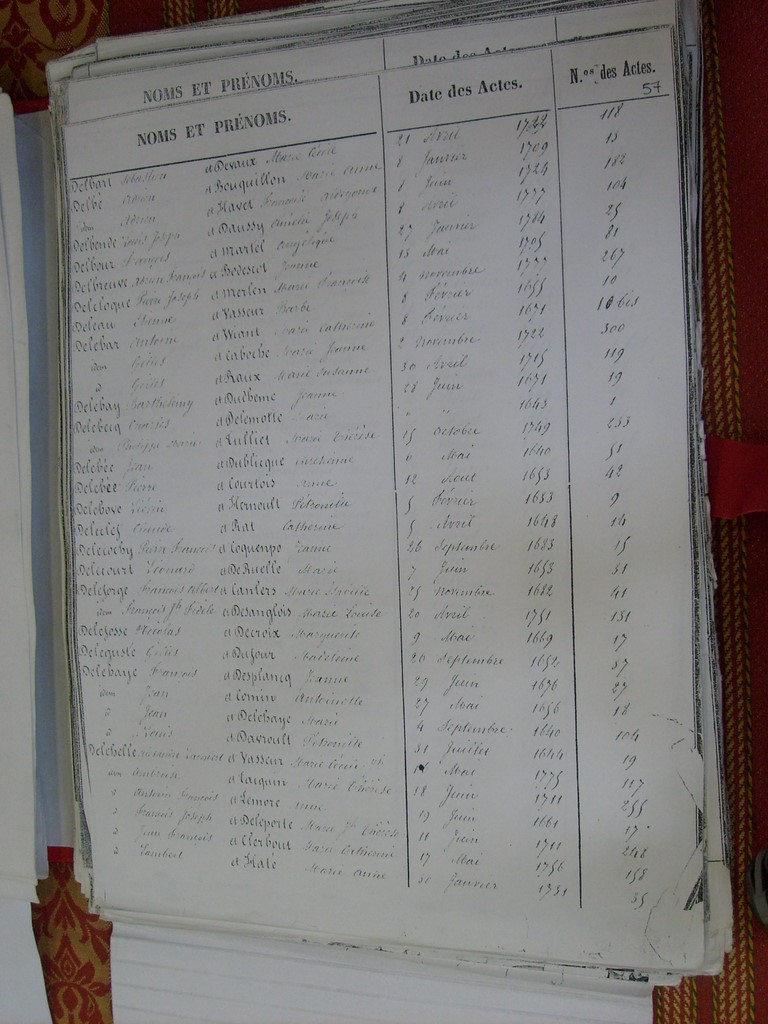 NOMS ET PRÉNOMS. Date des Actes
NOMS ET PRÉNOMS. Date des Actes. N.os des Actes.
57
Delbart Sébastien et Devaux Marie Cécile 21 Avril 118
Delbé Adrien et Bouquillon Marie Anne 8 Janvier 1709 13
idem Adrien et Havet Françoise 8 Juin 1724 182
Delbende Louis Joseph et Daussy Amélie Joseph 8 Avril 1777 104
Delbour François et Martel Angélique 27 Janvier 1784 25
Delbreuve Adrien François et Bodescot Jeanne 13 Mai 1705 81
Deleloque Pierre Joseph et Merlen Marie Françoise 4 Novembre 1777 267
Deleau Etienne et Vasseur Barbe 8 Février 1655 10
Delebar Antoine et Wiant Marie Catherine 8 Février 1671 16 bis
idem Gilles et Caboche Marie Jeanne 2 Novembre 1722 300
d Gilles et Raux Marie Susanne 30 Avril 1715 119
Delebay Barthélemy et Duebeme Jeanne 28 Juin 1631 19
Delebecq Charles et Delemotte Marie " " 1643 1
idem Philippe et Lulliez Marie Thérèse 15 Octobre 1749 233
Delebée Jean et Dublicque 6 Mai 1640 51
Delebée Pierre et Courtois Anne 12 Aout 1653 42
Delebove et Hernoult Pétronille 5 Février 1633 9
Delecley Claude et Rat Catherine 5 Avril 1648 14
Delecochy Pierre François et Coquenpo Jeanne 26 Septembre 1683 15
Delecourt Léonard et DeRuelle Marie 7 Juin 1653 31
Deleforge François Albert et Canlers Marie 25 Novembre 1682 41
idem François Jh Fidèle et Desanglois Marie Louise 20 Avril 1751 131
Delefosse Nicolas et Decroix Marguerite 9 Mai 1669 17
Deleguste Gilles et Dufour Madeleine 26 Septembre 1652 57
Delehaye François et Desplancq Jeanne 29 Juin 1676 27
idem Jean et Comin Antoinette 27 Mai 1656 12
d Jean et Delehaye Marie 4 Septembre 1640 104
d Louis et Davroult Pétronille 31 Juillet 1644 19
Delehelle et Vasseur Marie Cécile Jh Mai 1775 117
idem Ambroise et Cacquin Marie Thérèse 18 Juin 1711 255
d Antoine François et Lemore Anne 19 Juin 1661 17
d François Joseph et Deleporte Marie Jh Thérèse 11 Juin 1711 248
d Jean François et Clerbout Marie Catherine 17 Mai 1756 158
d Lambert et Halé Marie Anne 30 Janvier 1731 35